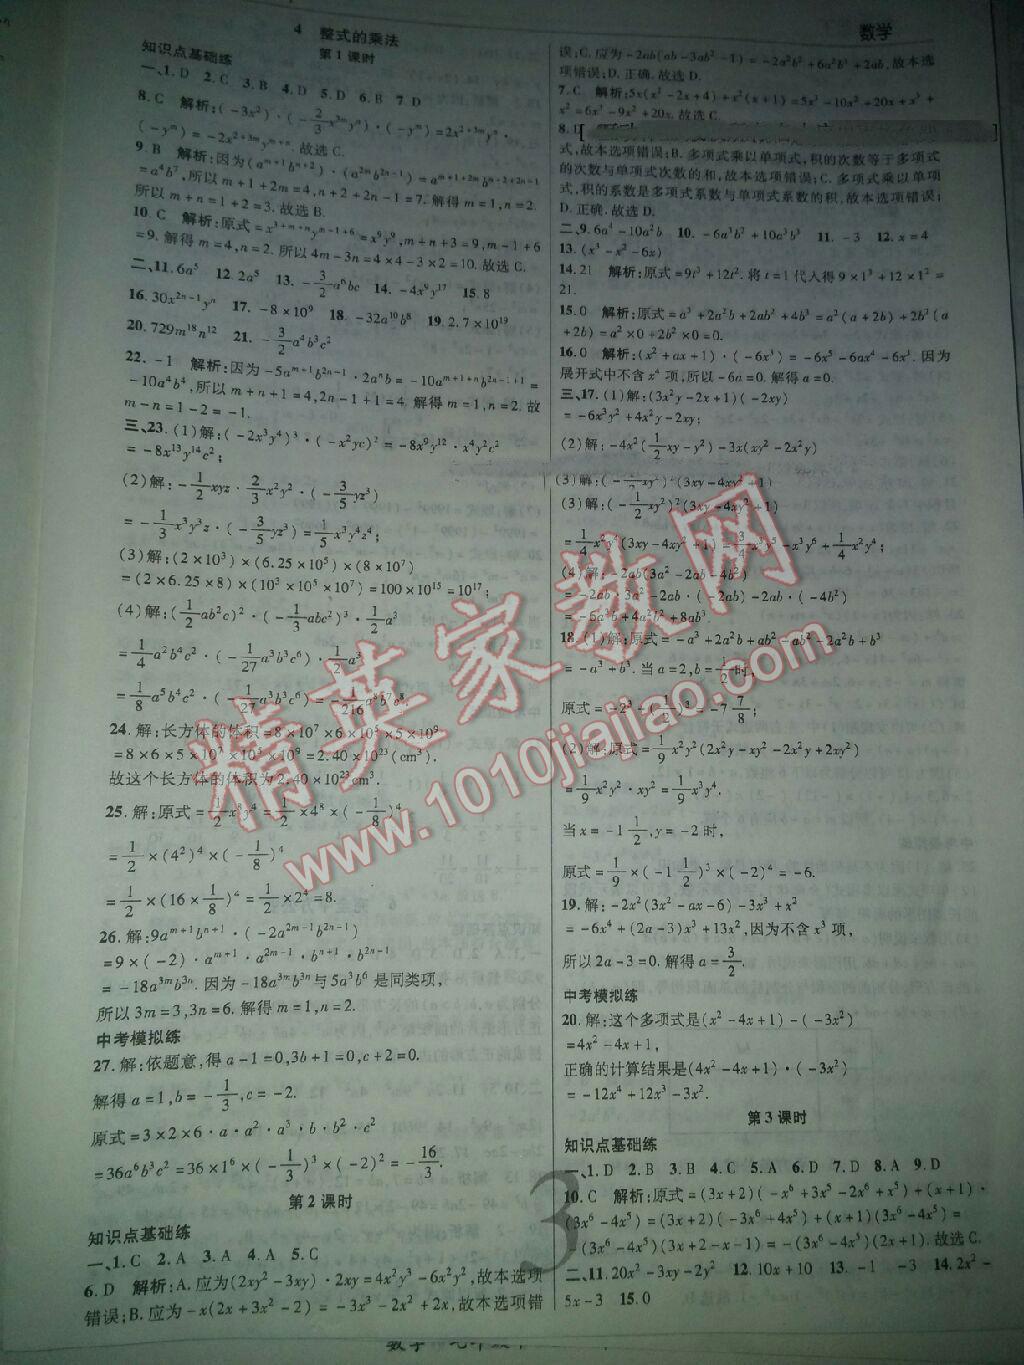 数学
4 整式的乘法
第1课时
知识点基础练
一、1. D 2. C 3. B 4. D 5. D 6. B 7. D
8. C 解析:(-3x²)·(-2/3 x^{3m}y^n)·(-y^m)=2x^{2+3m}y^n·
(-y^m)=-2x^{2+3m}y^{m+n}.故选C.
9. B 解析:因为(a^{m+1}b^{n+2})·(a^{2n}b^{2n-1})=a^{m+1+2n}b^{n+2+2n-1}
=a⁴b⁷,所以m+1+2m=4,n+2+2n-1=7.解得m=1,n=2.
所以m+n=1+2=3.故选B.
10. C 解析:原式=x^{3+m+n}y^{m-1+6}=x⁹y⁹,m+n+3=9,m-1+6
=9.解得m=4,n=2.所以4m-3n=4×4-3×2=10.故选C.
二、11. 6a⁵ 12. 2a⁵ 13. -3/2 a^n bc 14. -4x⁹y¹⁷ 15. 8
16. 30x^{2n-1}y^n 17. -8×10⁹ 18. -32a¹⁰b⁸ 19. 2.7×10¹⁹
20. 729m¹⁸n¹² 21. -3/2 a⁴b³c²
22. -1 解析:因为-5a^{m+1}b^{2n-1}·2a^n b=-10a^{m+1+n}b^{2n-1+1}=
-10a⁴b⁴,所以m+n+1=4,2n-1+1=4.解得m=1,n=2.故
m-n=1-2=-1.
三、23. (1)解:(-2x³y⁴)³·(-x²yc)²=-8x⁹y¹²·x⁴y²c²
=-8x¹³y¹⁴c²;
(2)解:-1/2 xyz·2/3 x²y²·(-3/5 yz³)
=-1/3 x³y³z·(-3/5 yz³)=1/5 x³y⁴z⁴;
(3)解:(2×10³)×(6.25×10⁵)×(8×10⁷)
=(2×6.25×8)×(10³×10⁵×10⁷)=100×10¹⁵=10¹⁷;
(4)解:(1/2 ab²c)²·(-1/3 abc²)³·1/2 a³
=1/4 a²b⁴c²·(-1/27 a³b³c⁶)·1/2 a³
=1/8 a⁵b⁴c²·(-1/27 a³b³c⁶)=-1/216 a⁸b⁷c⁸.
24. 解:长方体的体积=8×10⁷×6×10⁵×5×10⁹
=8×6×5×10⁷×10⁵×10⁹=2.40×10²³(cm³).
故这个长方体的体积为2.40×10²³cm³.
25. 解:原式=1/2 x⁸y⁴=1/2×4⁸×(-1/8)⁴
=1/2×(4²)⁴×(-1/8)⁴
=1/2×(16×1/8)⁴=1/2×2⁴=8.
26. 解:9a^{m+1}b^{n+1}·(-2a^{2m-1}b^{2n-1})
=9×(-2)·a^{m+1}·a^{2m-1}·b^{n+1}·b^{2n-1}
=-18a^{3m}b^{3n}.因为-18a^{3m}b^{3n}与5a³b⁶是同类项,
所以3m=3,3n=6.解得m=1,n=2.
中考模拟练
27. 解:依题意,得a-1=0,3b+1=0,c+2=0.
解得a=1,b=-1/3,c=-2.
原式=3×2×6·a·a²·a³·b·b²·c²
=36a⁶b³c²=36×1⁶×(-1/3)³×(-2)²=-16/3.
第2课时
知识点基础练
一、1. C 2. A 3. A 4. A 5. C
6. D 解析:A.应为(2xy²-3xy)·2xy=4x²y³-6x²y²,故本选项
错误;B.应为-x(2x+3x²-2)=-3x³-2x²+2x,故本选项错
误;C.应为-2ab(ab-3ab²-1)=-2a²b²+6a²b³+2ab,故本选
项错误;D.正确.故选D.
7. C 解析:5x(x²-2x+4)+x²(x+1)=5x³-10x²+20x+x³+
x²=6x³-9x²+20x.故选C.
式,故本选项错误;B.多项式乘以单项式,积的次数等于多项式
的次数与单项式次数的和,故本选项错误;C.多项式乘以单项
式,积的系数是多项式系数与单项式系数的积,故本选项错误;
D.正确.故选D.
二、9. 6a⁴-10a²b 10. -6a³b²+10a³b³ 11. -3 12. x=4
13. (x³-x²-6x)
14. 21 解析:原式=9t³+12t².将t=1代入得9×1³+12×1²=
21.
15. 0 解析:原式=a³+2a²b²+2ab²+4b³=a²(a+2b)+2b²(a
+2b)=a²×0+2b²×0=0.
16. 0 解析:(x²+ax+1)·(-6x³)=-6x⁵-6ax⁴-6x³.因为
展开式中不含x⁴项,所以-6a=0.解得a=0.
三、17. (1)解:(3x²y-2x+1)(-2xy)
=-6x³y²+4x²y-2xy;
(2)解:-4x²(1/2 xy-y²)-3x(xy²-2x²y)
(3)解:(-1/2 xy²)²(3xy-4xy²+1)
(3)解:(-1/2 xy²)²(3xy-4xy²+1)
=1/4 x²y⁴(3xy-4xy²+1)=3/4 x³y⁵-x³y⁶+1/4 x²y⁴;
(4)解:-2ab(3a²-2ab-4b²)
=-2ab·3a²-2ab·(-2ab)-2ab·(-4b²)
=-6a³b+4a²b²+8ab³.
18. (1)解:原式=-a³+2a²b+ab²-ab²-2a²b+b³
=-a³+b³.当a=2,b=1/2时,
原式=-2³+(1/2)³=-7 7/8;
(2)解:原式=1/9 x²y²(2x²y-xy²-2x²y+2xy²)
=1/9 x²y²·xy²=1/9 x³y⁴.
当x=-1 1/2,y=-2时,
原式=1/9×(-1 1/2)³×(-2)⁴=-6.
19. 解:-2x²(3x²-ax-6)-3x³+x²
=-6x⁴+(2a-3)x³+13x²,因为不含x³项,
所以2a-3=0.解得a=3/2.
中考模拟练
20. 解:这个多项式是(x²-4x+1)-(-3x²)
=4x²-4x+1,
正确的计算结果是(4x²-4x+1)·(-3x²)
=-12x⁴+12x³-3x².
第3课时
知识点基础练
一、1. D 2. B 3. B 4. C 5. A 6. D 7. D 8. A 9. D
10. C 解析:原式=(3x+2)(-x⁶+3x⁵-2x⁶+x⁵)+(x+1)·
(3x⁶-4x⁵)=(3x+2)(-3x⁶+4x⁵)+(x+1)(3x⁶-4x⁵)=
(3x⁶-4x⁵)(-3x-2+x+1)=-(3x⁶-4x⁵)(2x+1).故选C.
二、11. 20x²-3xy-2y² 12. 10x+10 13. -1 -3 14. 2x²-
5x-3 15. 0
3
精英家教网
www.1010jiajiao.com